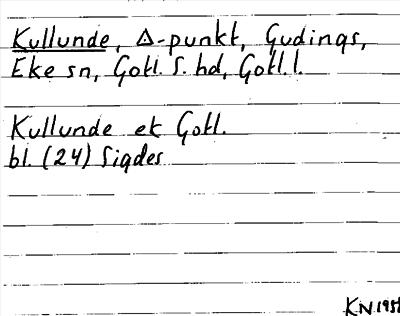 Kullunde, △-punkt, Gudings,
Eke sn, Gotl. S. hd, Gotl. l.
Kullunde ek Gotl.
bl. (24) Sigdes
KN 1951